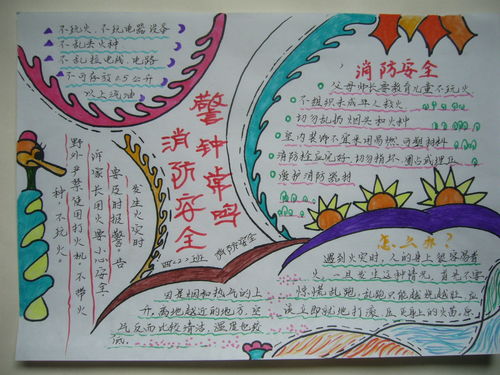 不玩火、不玩电器设备
不乱丢火种
不乱拉电线、电路
不可存放0.5公升
以上汽油
警钟常鸣
消防安全
四.2班
消防安全
发生火灾时
要及时报警。告
诉家长用火要小心安全
野外严禁使用打火机。不带火
种,不玩火。
消防安全
父母师长要教育儿童不玩火。
不组织未成年人救火
切勿乱扔烟头和火种
室内装饰不宜采用易燃、可塑材料
消防栓应完好,切勿损坏、圈占或埋压
爱护消防器材
怎么办?
遇到火灾时,人的身上很容易着
火,一旦发生这种情况,首先不要
惊慌乱跑,乱跑只能越烧越旺,应
该立即就地打滚,压灭身上的火苗。
因是烟和热气的上
升,离地越近的地方,空
气反而比较清洁,温度也较
低。